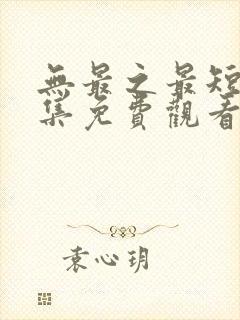 無最之最短
集免費觀看
袁心玥